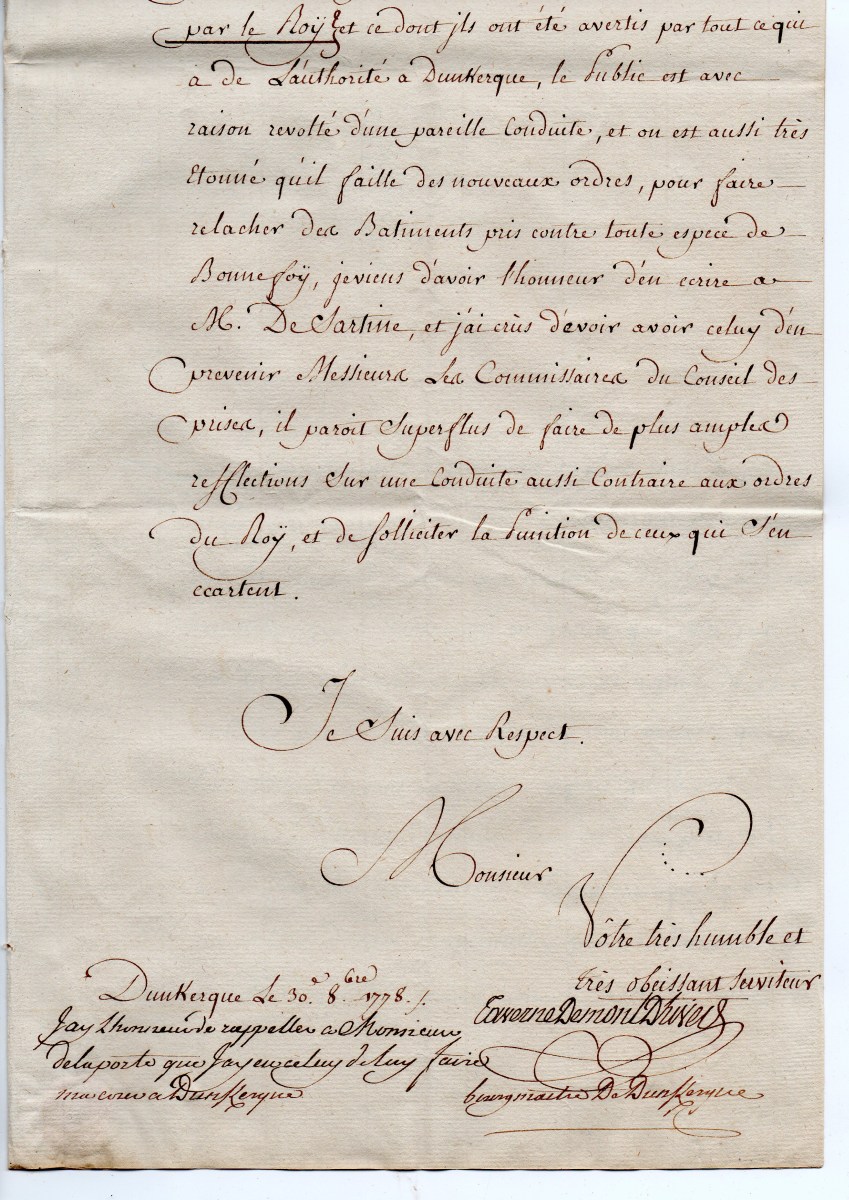 par le Roÿ et ce dont jls ont été avertis par tout ce qui
a de L'authorité a Dunkerque, le Public est avec
raison revolté d'une pareille Conduite, et on est aussi très
Etonné qu'il faille des nouveaux ordres, pour faire
relacher des Batiments pris contre toute espece de
Bonne foÿ, je viens d'avoir l'honneur d'en ecrire a
M. De Sartine, et j'ai crûs d'evoir avoir celuy d'en
prevenir Messieurs Les Commissaires du Conseil des
prises, il paroit Superflus de faire de plus amples
refflections Sur une Conduite aussi Contraire aux ordres
du Roÿ, et de solliciter la Punition de ceux qui S'en
ecartent.
Je Suis avec Respect.
Monsieur
Vôtre très humble et
très obeissant Serviteur
Dunkerque Le 30.e 8.bre 1778 /.
Taverne Demont Dhiver
Jay Lhonneur de rappeller a Monsieur
delaporte que Jay eu celuy de luy faire
ma cour a Dunkerque
bourgmaitre De Dunkerque